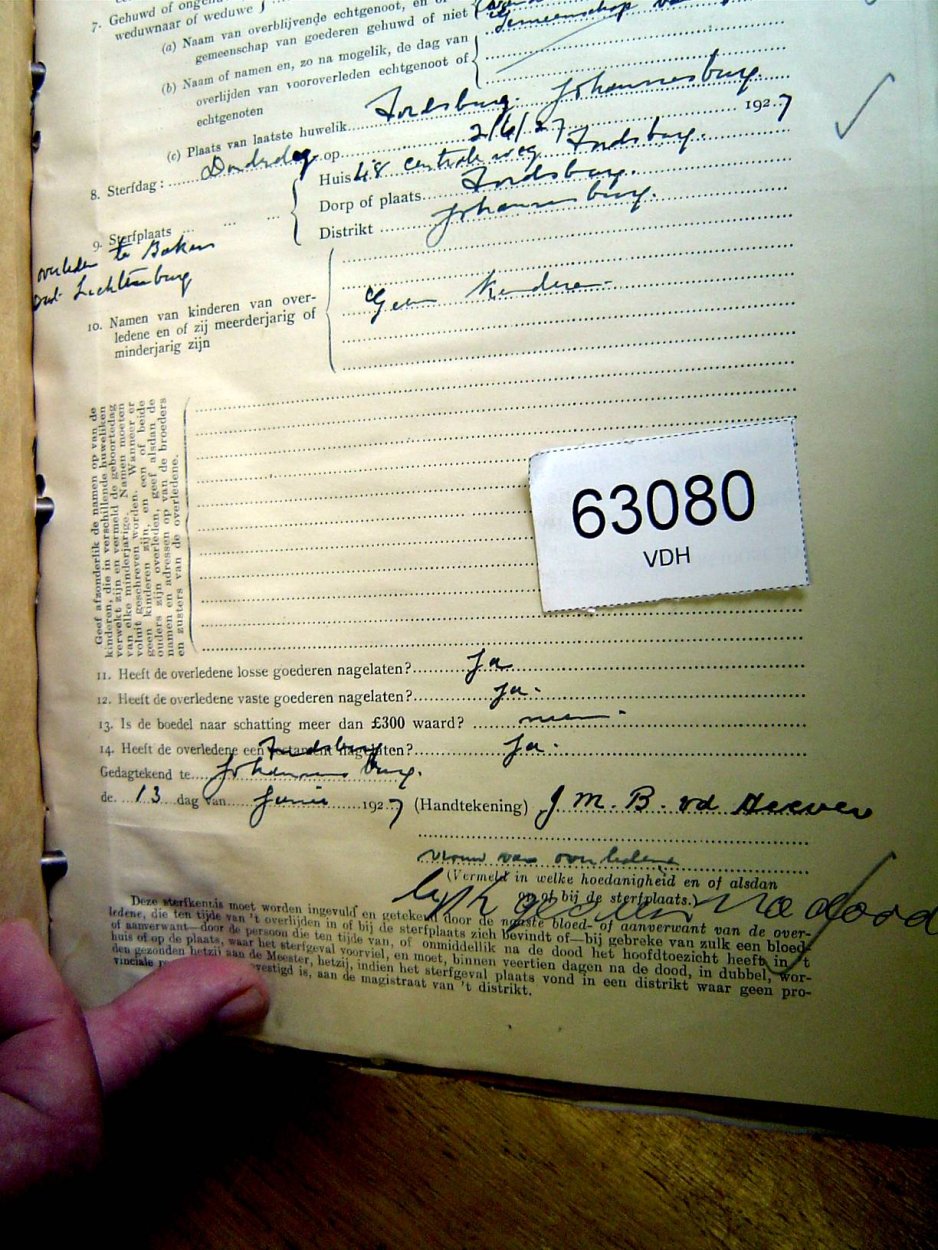 7. Gehuwd of
weduwnaar of weduwe
(a) Naam van overblijvende echtgenoot, en of
gemeenschap van goederen gehuwd of niet
gemeenschap van
(b) Naam of namen en, zo na mogelik, de dag van
overlijden van vooroverleden echtgenoot of
echtgenoten
(c) Plaats van laatste huwelik Fordsburg. Johannesburg.
8. Sterfdag: Donderdag op 2/6/27 1927
9. Sterfplaats
Huis 48 centrale weg Fordsburg.
Dorp of plaats Fordsburg.
Distrikt Johannesburg.
overleden te Bakers
dist. Lichtenburg
10. Namen van kinderen van over-
ledene en of zij meerderjarig of
minderjarig zijn
Geen Kinderen
Geef afzonderlik de namen op van de
kinderen, die in verschillende huweliken
verwekt zijn en vermeld de geboortedag
van elke minderjarige. Namen moeten
voluit geschreven worden. Wanneer er
geen kinderen zijn, en een of beide
ouders zijn overleden, geef alsdan de
namen en adressen op van de broeders
en zusters van de overledene.
63080
VDH
11. Heeft de overledene losse goederen nagelaten? Ja
12. Heeft de overledene vaste goederen nagelaten? Ja.
13. Is de boedel naar schatting meer dan £300 waard? neen.
14. Heeft de overledene een testament nagelaten? Ja.
Fordsburg
Gedagtekend te Johannesburg.
de 13 dag van Junie 1927 (Handtekening) J. M. B. vd Heever
vrouw van overledene
(Vermeld in welke hoedanigheid en of alsdan
op of bij de sterfplaats.)
na dood
Deze sterfkentis moet worden ingevuld en getekend door de naaste bloed- of aanverwant van de over-
ledene, die ten tijde van 't overlijden in of bij de sterfplaats zich bevindt of—bij gebreke van zulk een bloed-
of aanverwant—door de persoon die ten tijde van, of onmiddelik na de dood het hoofdtoezicht heeft in 't
huis of op de plaats, waar het sterfgeval voorviel, en moet, binnen veertien dagen na de dood, in dubbel, wor-
den gezonden hetzij aan de Meester, hetzij, indien het sterfgeval plaats vond in een distrikt waar geen pro-
vinciale gevestigd is, aan de magistraat van 't distrikt.